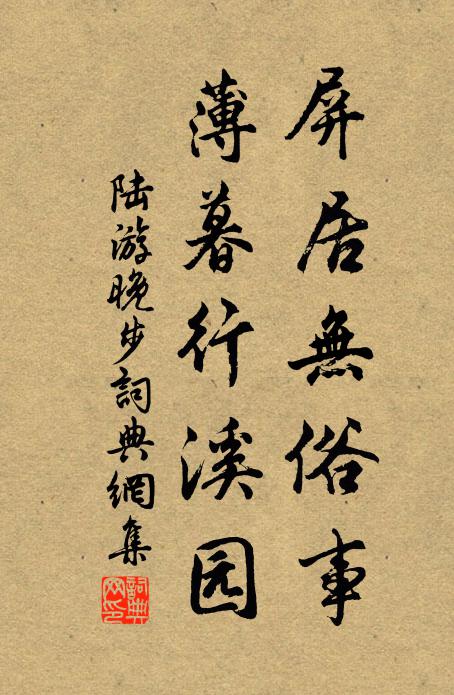 屏居無俗事
薄暮行溪园
陆游晚步詞典網集
詞典网印